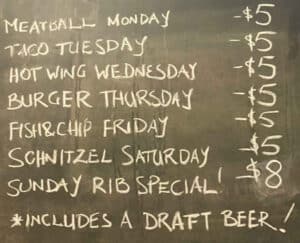 MEATBALL MONDAY -$5
TACO TUESDAY -$5
HOT WING WEDNESDAY -$5
BURGER THURSDAY -$5
FISH&CHIP FRIDAY -$5
SCHNITZEL SATURDAY -$5
SUNDAY RIB SPECIAL! -$8
*INCLUDES A DRAFT BEER!